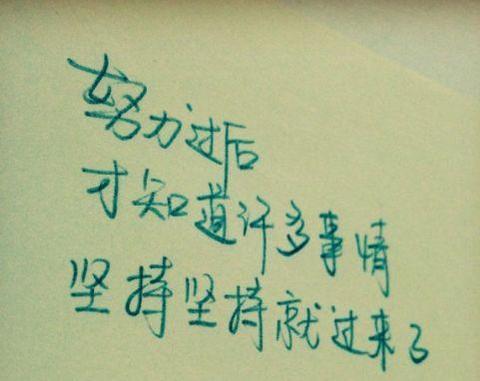 努力过后
才知道许多事情
坚持坚持就过来了